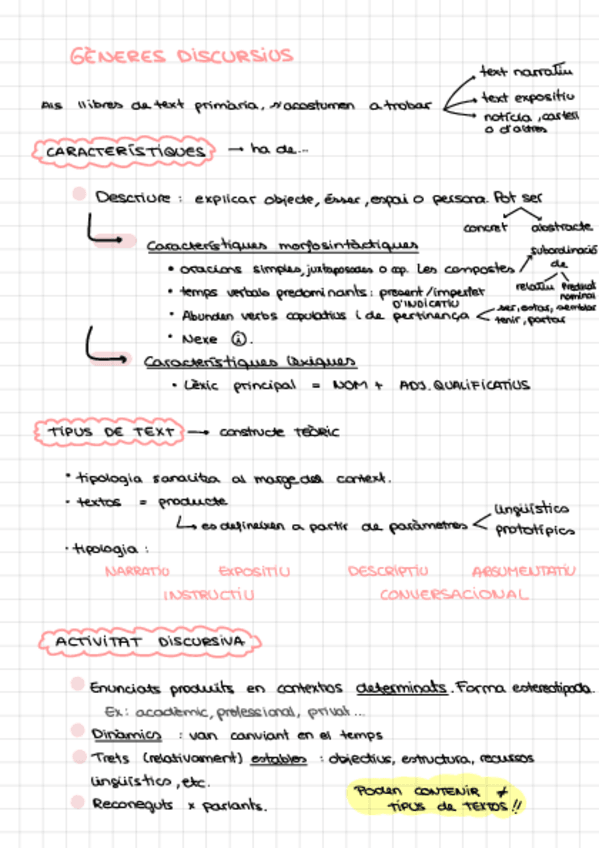 GÈNERES DISCURSIUS
text narratiu
Als llibres de text primària, s'acostumen a trobar
text expositiu
notícia, cartell
o d'altres
CARACTERÍSTIQUES → ha de...
Descriure : explicar objecte, ésser, espai o persona. Pot ser
concret abstracte
Característiques morfosintàctiques
subordinació
de
• oracions simples, juxtaposades o cp. Les compostes
relatiu Predicat
nominal
• temps verbals predominants: present/imperfet
D'INDICATIU
• Abunden verbs copulatius i de pertinença
ser, estar, semblar
tenir, portar
• Nexe i.
Característiques lèxiques
• Lèxic principal = NOM + ADJ. QUALIFICATIUS
TIPUS DE TEXT → constructe TEÒRIC
• tipologia s'analitza al marge del context.
• textos = producte
↳ es defineixen a partir de paràmetres
lingüístics
prototípics
• tipologia :
NARRATIU EXPOSITIU DESCRIPTIU ARGUMENTATIU
INSTRUCTIU CONVERSACIONAL
ACTIVITAT DISCURSIVA
Enunciats produïts en contextos determinats. Forma estereotipada.
Ex: acadèmic, professional, privat...
Dinàmics : van canviant en el temps
Trets (relativament) estables : objectius, estructura, recursos
lingüístics, etc.
Reconeguts x parlants.
Poden CONTENIR ≠
TIPUS de TEXTOS!!